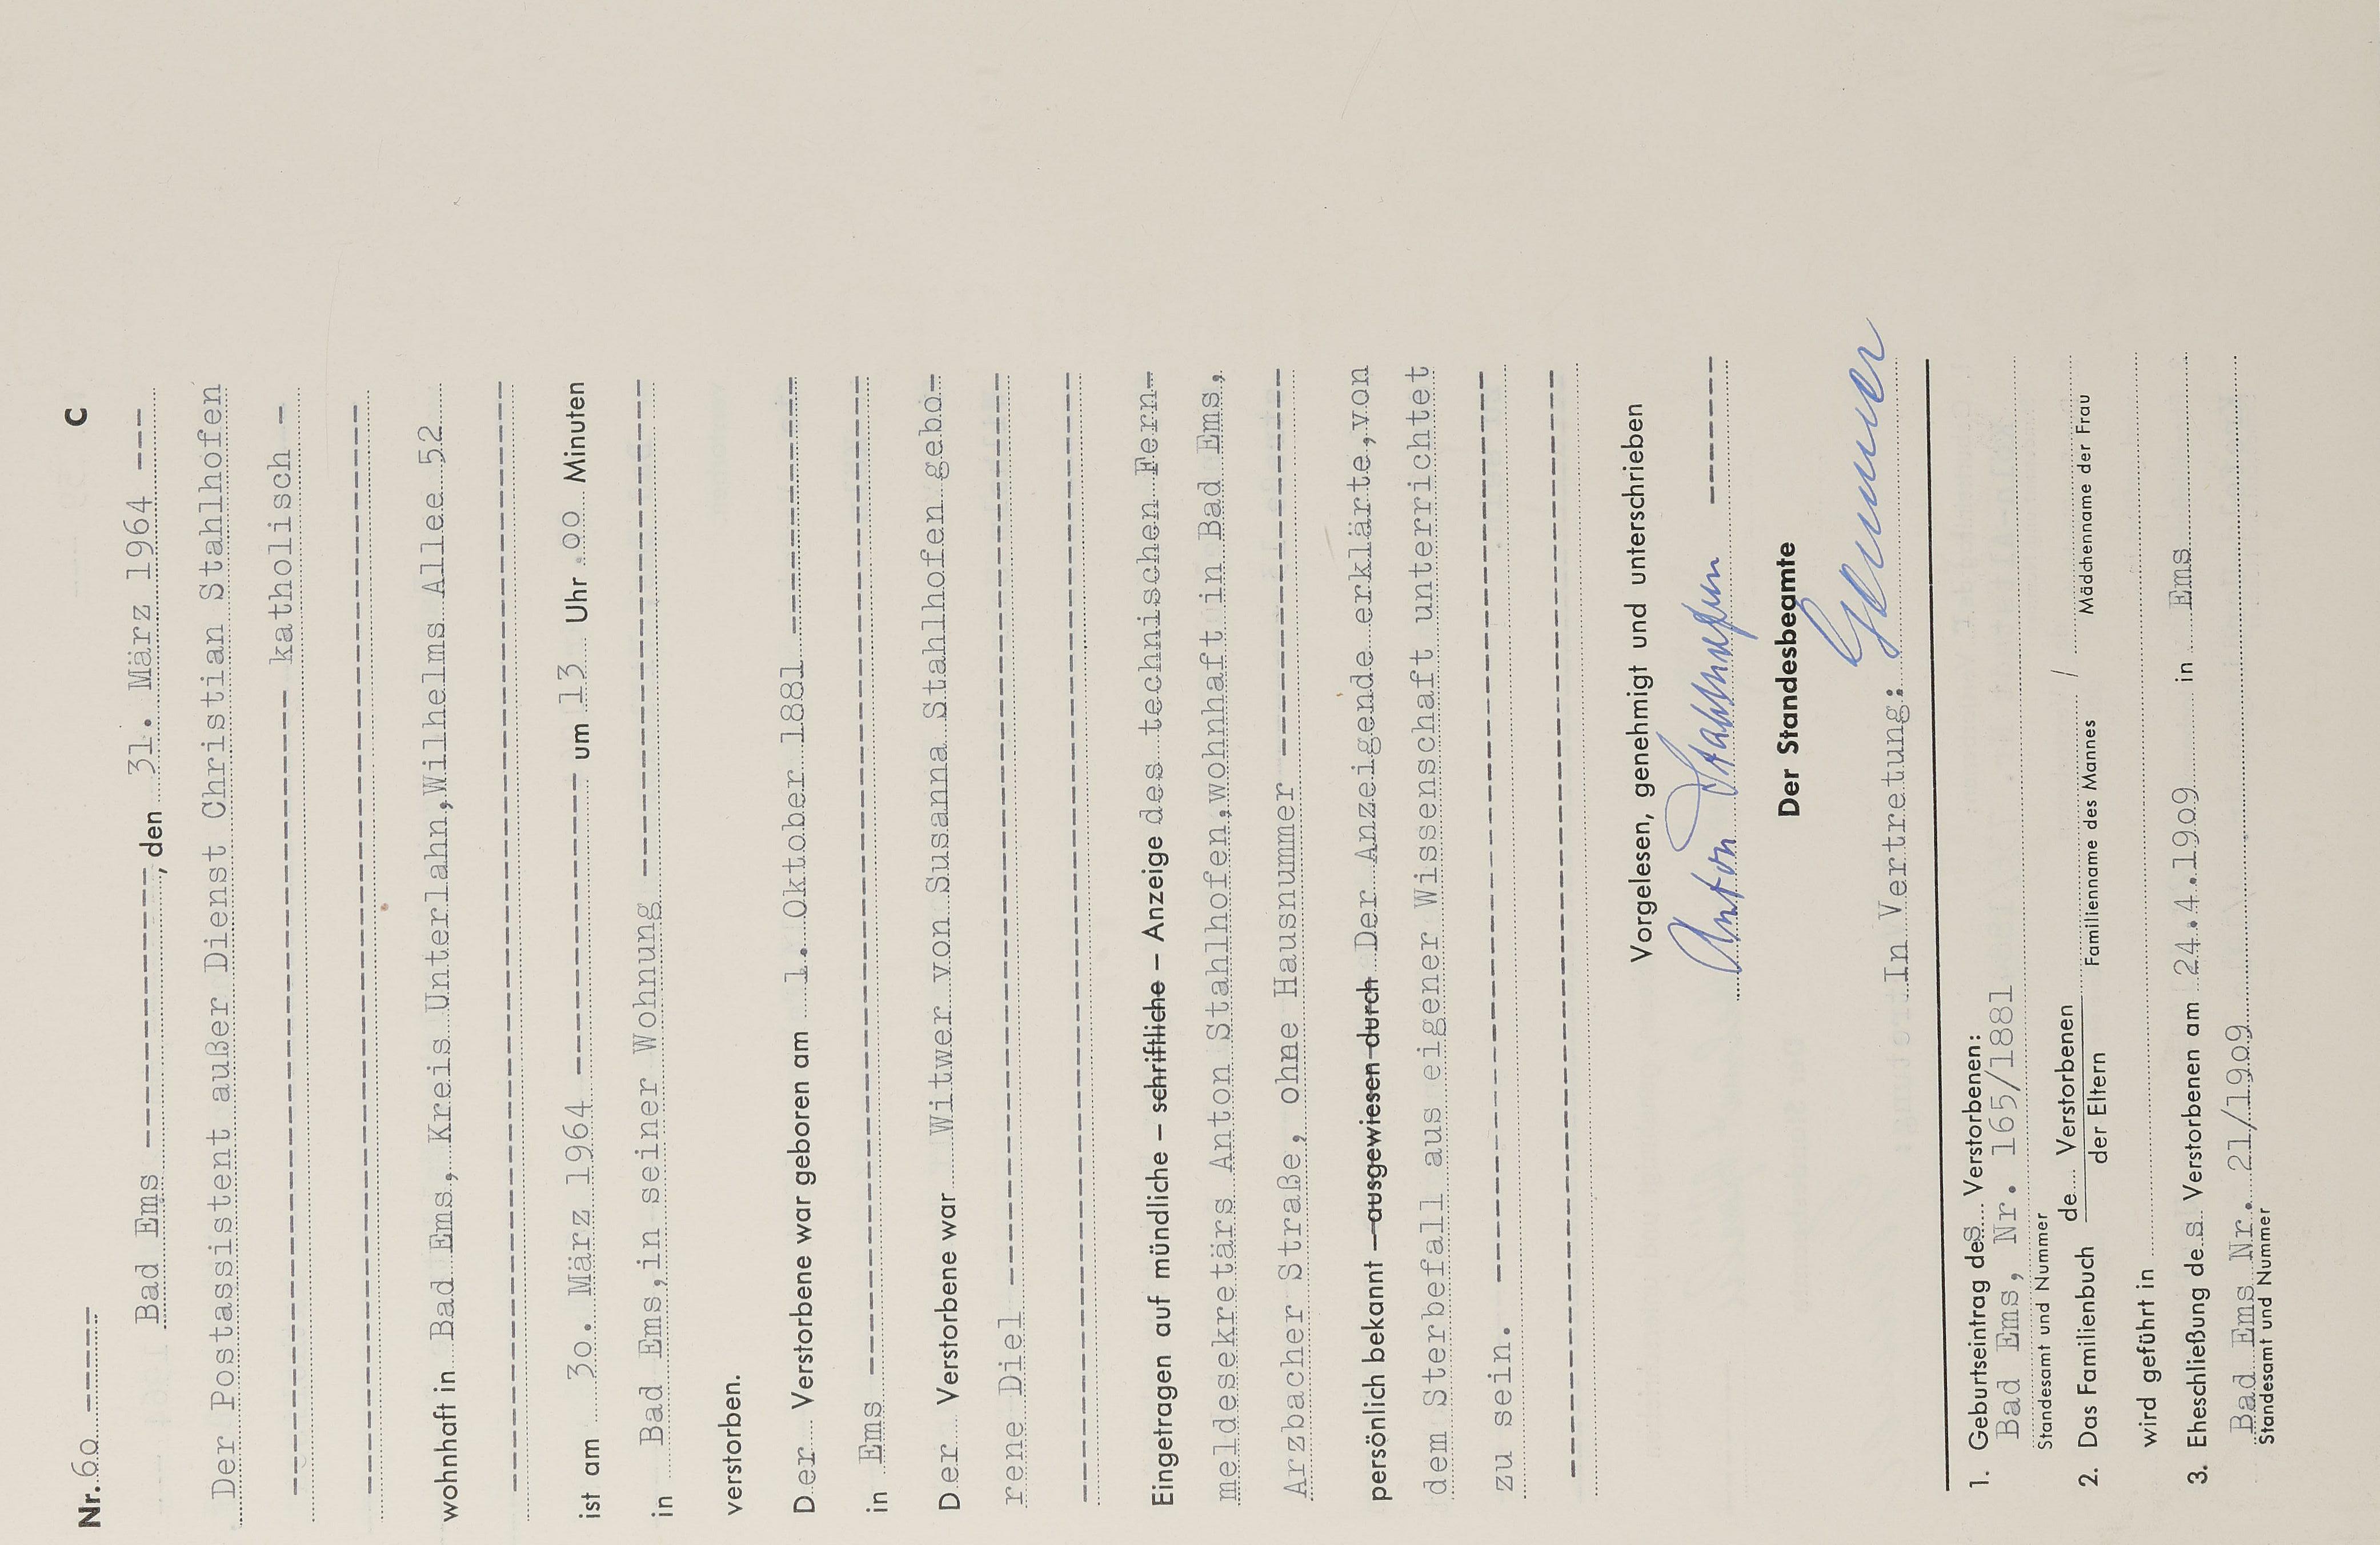 Nr. 60 ------
C
Bad Ems ---------------, den 31. März 1964 ---
Der Postassistent außer Dienst Christian Stahlhofen
--------------------------------- katholisch -
---------------------------------------------
wohnhaft in Bad Ems, Kreis Unterlahn,Wilhelms Allee 52
---------------------------------------------
ist am 30. März 1964 --------------- um 13 Uhr 00 Minuten
in Bad Ems,in seiner Wohnung -------------------------
verstorben.
Der Verstorbene war geboren am 1. Oktober 1881 -------------
in Ems ---------------------------------------------
Der Verstorbene war Witwer von Susanna Stahlhofen gebo-
rene Diel ---------------------------------------------
---------------------------------------------
Eingetragen auf mündliche – schriftliche – Anzeige des technischen Fern-
meldesekretärs Anton Stahlhofen,wohnhaft in Bad Ems,
Arzbacher Straße, ohne Hausnummer --------------------
persönlich bekannt – ausgewiesen durch Der Anzeigende erklärte,von
dem Sterbefall aus eigener Wissenschaft unterrichtet
zu sein. ---------------------------------------------
---------------------------------------------
Vorgelesen, genehmigt und unterschrieben
Anton Stahlhofen -------
Der Standesbeamte
In Vertretung:
1. Geburtseintrag des Verstorbenen:
Bad Ems, Nr. 165/1881
Standesamt und Nummer
2. Das Familienbuch de Verstorbenen /
der Eltern Familienname des Mannes Mädchenname der Frau
wird geführt in
3. Eheschließung des Verstorbenen am 24.4.1909 in Ems
Bad Ems Nr. 21/1909
Standesamt und Nummer